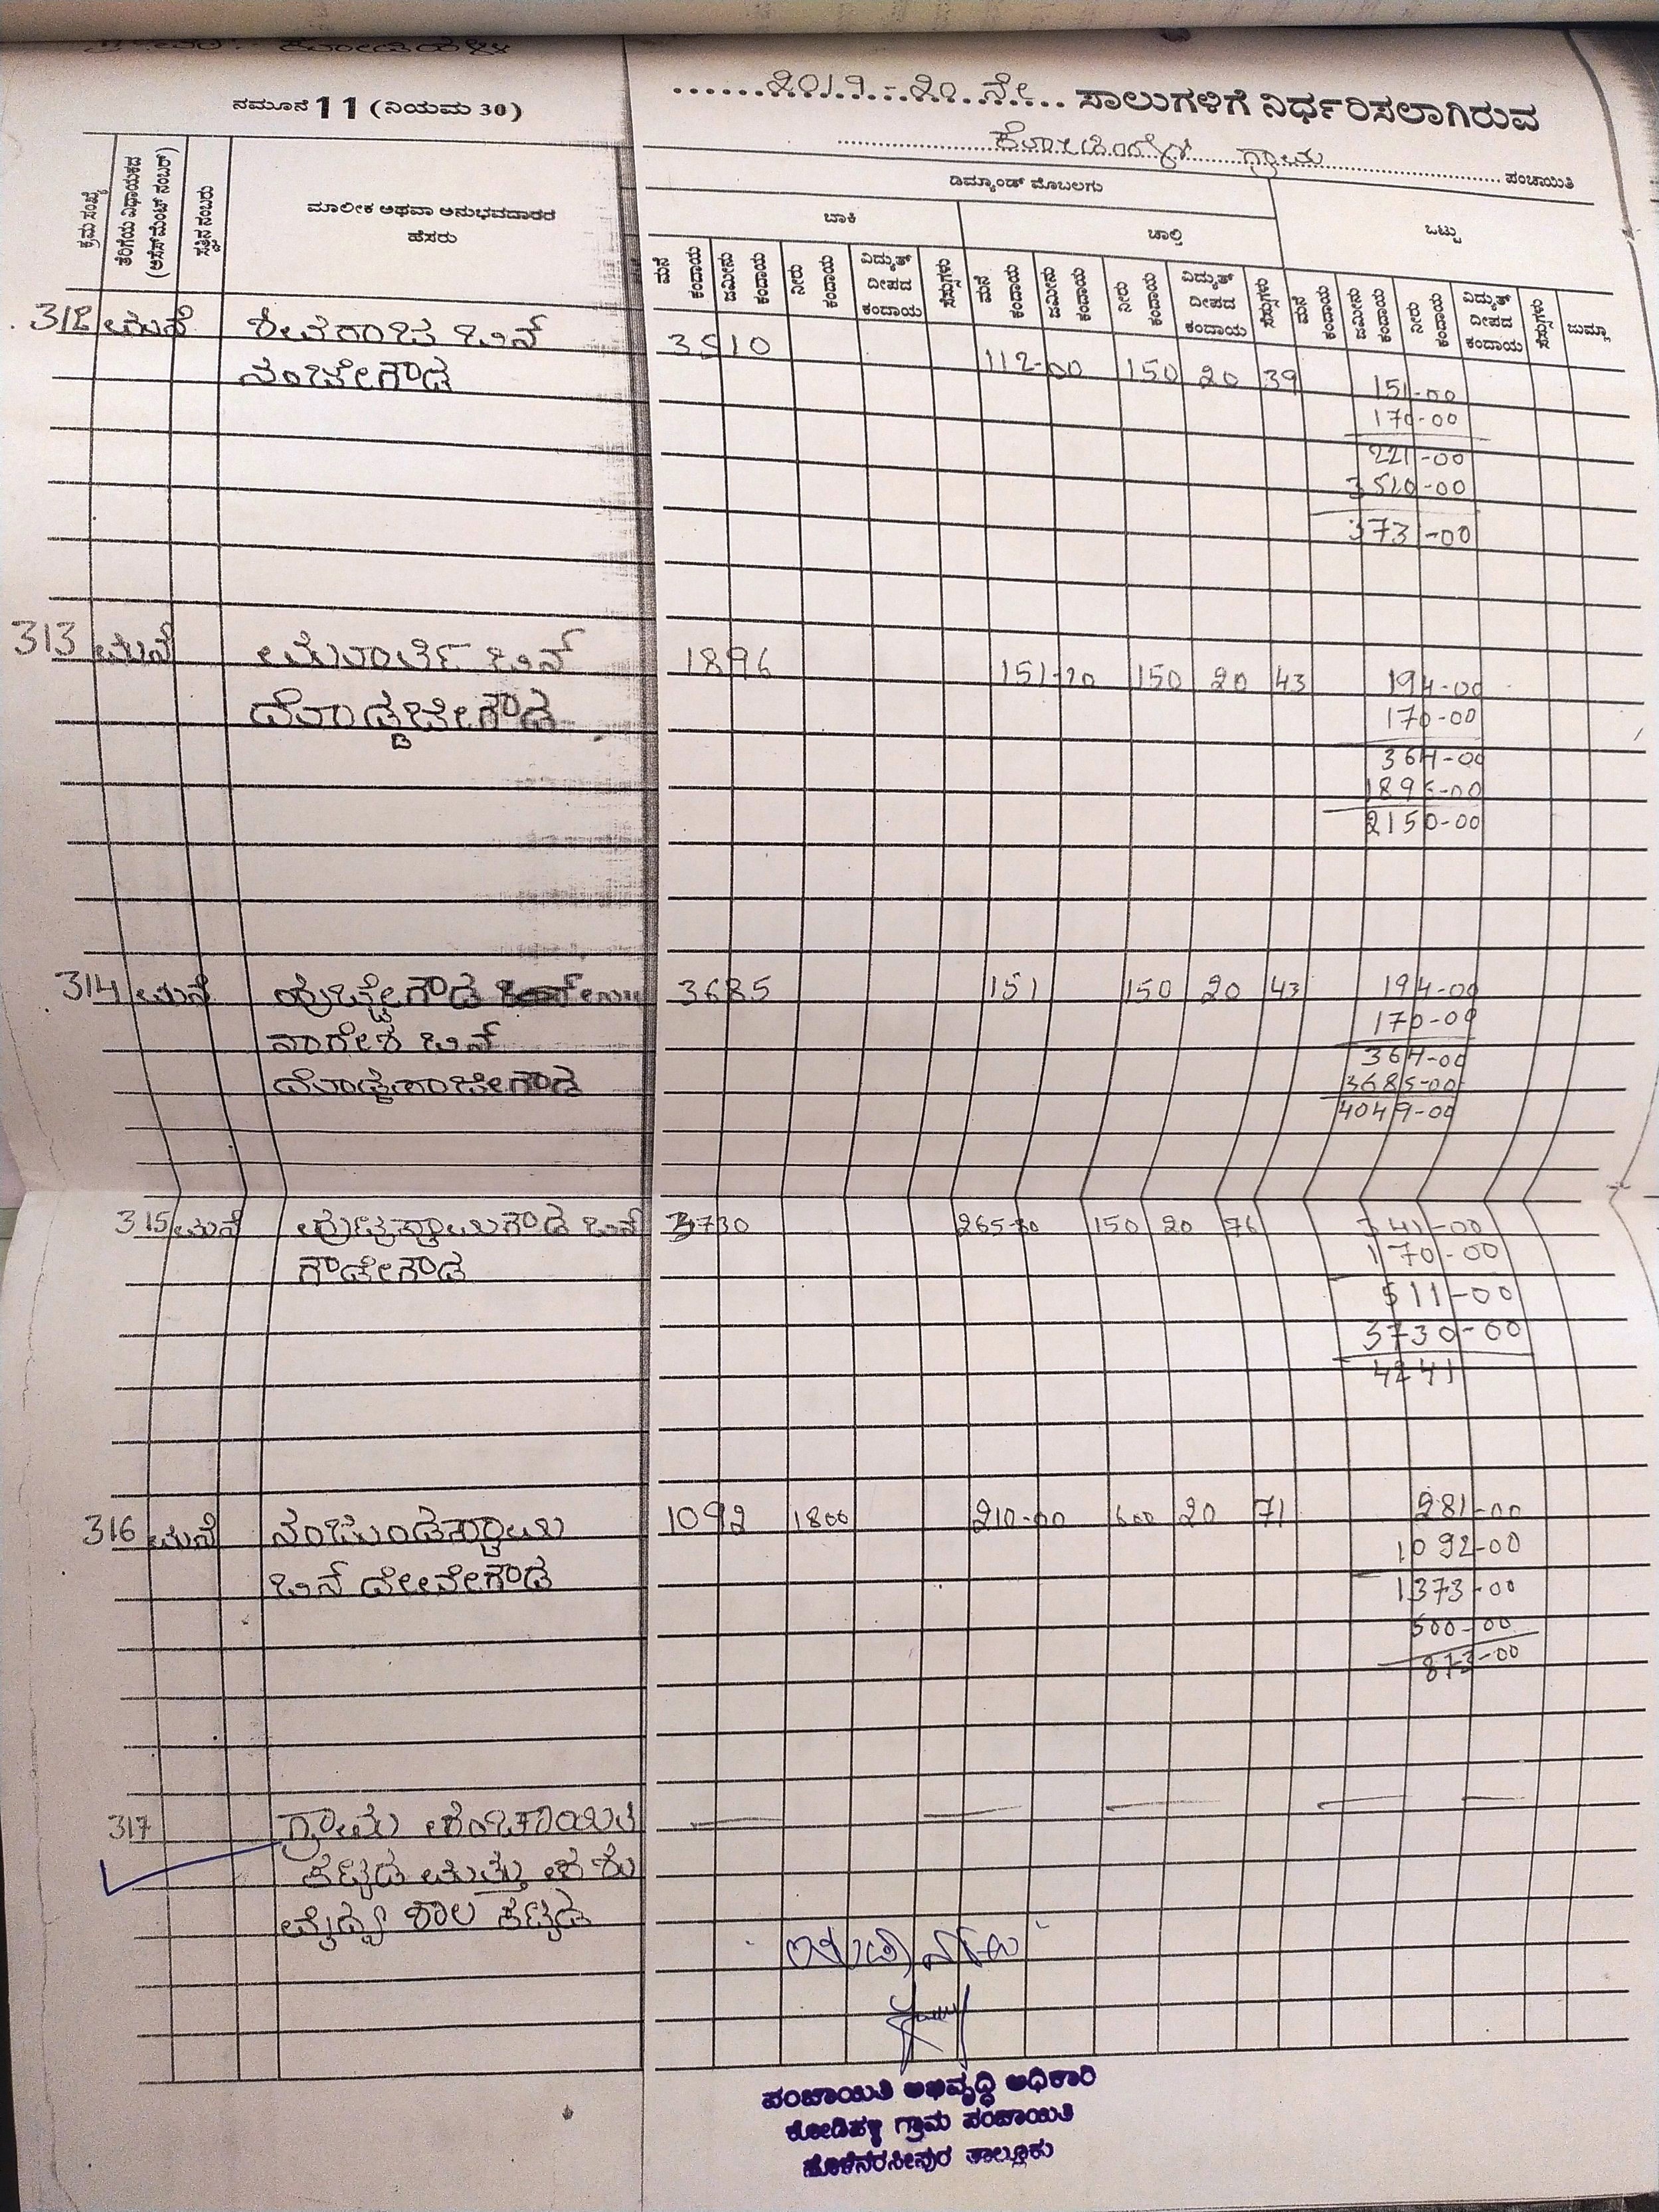 ನಮೂನೆ 11 (ನಿಯಮ 30)
2019-20 ನೇ ಸಾಲುಗಳಿಗೆ ನಿರ್ಧರಿಸಲಾಗಿರುವ
ಗ್ರಾಮ ಪಂಚಾಯಿತಿ
ಡಿಮ್ಯಾಂಡ್ ಮೊಬಲಗು
ಬಾಕಿ ಚಾಲ್ತಿ ಒಟ್ಟು
ಕ್ರಮ ಸಂಖ್ಯೆ
ತೆರಿಗೆಯ ವಿಧಾಯಕದ (ಅಸೆಸ್‌ಮೆಂಟ್ ನಂಬರ್)
ಸ್ವತ್ತಿನ ನಂಬರು
ಮಾಲೀಕ ಅಥವಾ ಅನುಭವದಾರರ
ಹೆಸರು
ಮನೆ ಕಂದಾಯ ಜಮೀನು ಕಂದಾಯ ನೀರು ಕಂದಾಯ ವಿದ್ಯುತ್ ದೀಪದ ಕಂದಾಯ ಸೆಸ್ಸುಗಳು
ಮನೆ ಕಂದಾಯ ಜಮೀನು ಕಂದಾಯ ನೀರು ಕಂದಾಯ ವಿದ್ಯುತ್ ದೀಪದ ಕಂದಾಯ ಸೆಸ್ಸುಗಳು
ಮನೆ ಕಂದಾಯ ಜಮೀನು ಕಂದಾಯ ನೀರು ಕಂದಾಯ ವಿದ್ಯುತ್ ದೀಪದ ಕಂದಾಯ ಸೆಸ್ಸುಗಳು ಜುಮ್ಲಾ
312 ಮನೆ ಬಿನ್ 3510 112-00 150 20 39 151-00
ನಂಜೇಗೌಡ 170-00
221-00
3510-00
3731-00
313 ಮನೆ ಮೂರ್ತಿ ಬಿನ್ 1896 151-20 150 20 43 194-00
ದೊಡ್ಡಜೇಗೌಡ 170-00
364-00
1896-00
2150-00
314 ಮನೆ ಹುಚ್ಚೇಗೌಡ 3685 151 150 20 43 194-00
ನಾಗೇಶ ಬಿನ್ 170-00
364-00
3685-00
4049-00
315 ಮನೆ ಪುಟ್ಟಸ್ವಾಮಿಗೌಡ ಬಿನ್ 3730 150 20 76 341-00
ಗೌಡೇಗೌಡ 170-00
511-00
3730-00
4241
316 ಮನೆ ನಂಜುಂಡಸ್ವಾಮಿ 1092 1800 210-00 600 20 71 281-00
ಬಿನ್ ದೇವೇಗೌಡ 1092-00
1373-00
500-00
873-00
317 ಗ್ರಾಮ ಪಂಚಾಯಿತಿ
ಕಟ್ಟಡ ಮತ್ತು ಪಶು
ವೈದ್ಯ ಶಾಲ ಕಟ್ಟಡ
ಪಂಚಾಯಿತಿ ಅಭಿವೃದ್ಧಿ ಅಧಿಕಾರಿ
ಕೋಡಿಹಳ್ಳಿ ಗ್ರಾಮ ಪಂಚಾಯಿತಿ
ಹೊಳೆನರಸೀಪುರ ತಾಲ್ಲೂಕು